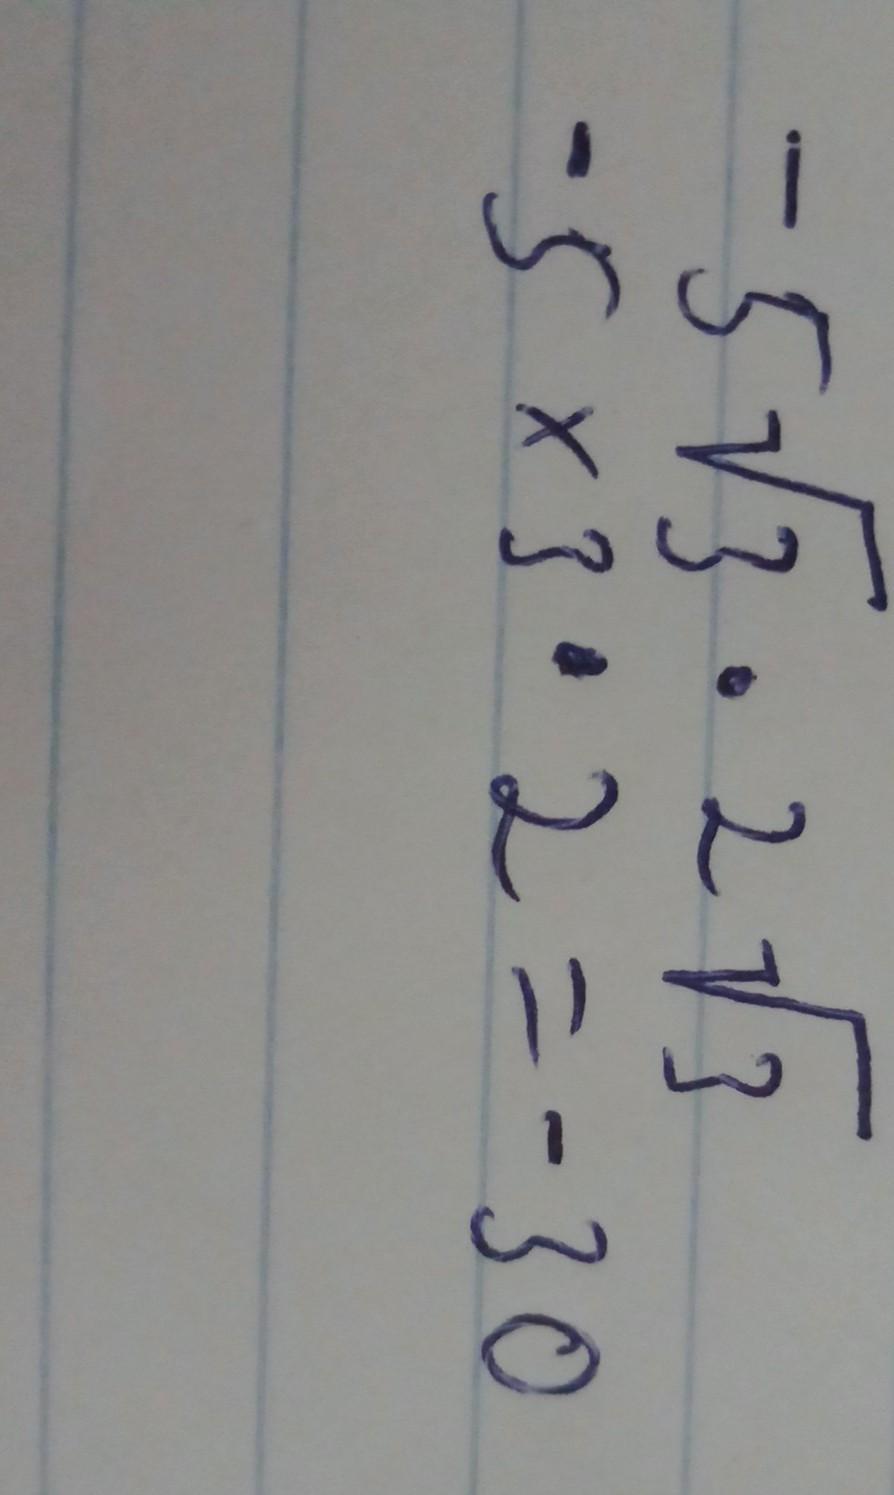 - 5 √3 · 2 √3
- 5 × 3 · 2 = - 30